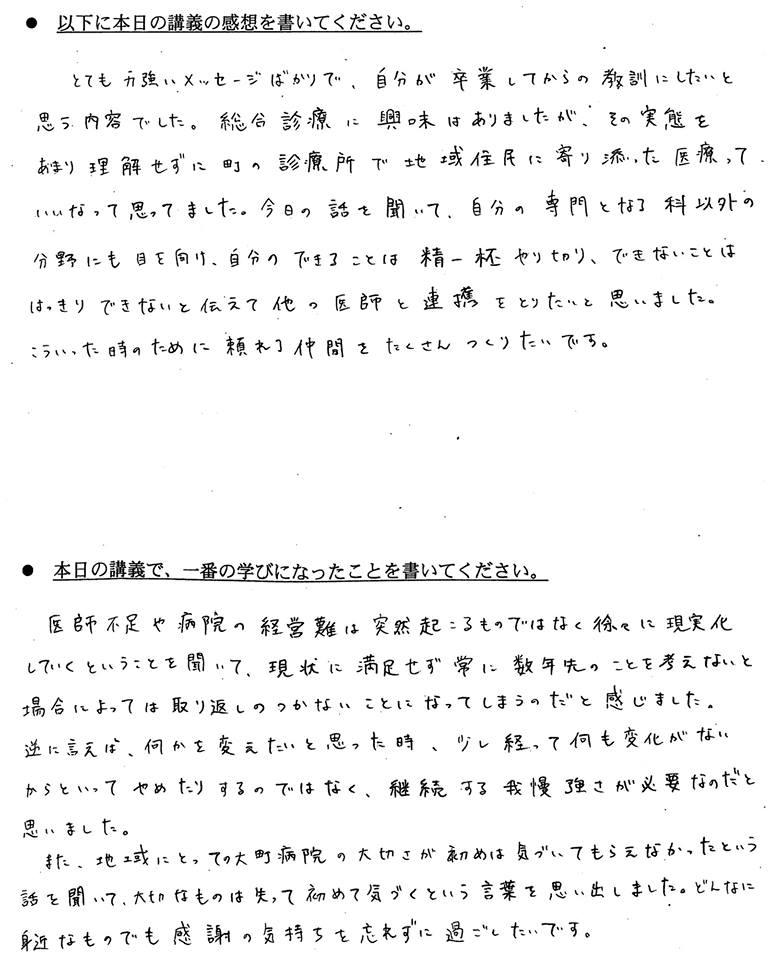 ● 以下に本日の講義の感想を書いてください。
とても力強いメッセージばかりで、自分が卒業してからの教訓にしたいと
思う内容でした。総合診療に興味はありましたが、その実態を
あまり理解せずに町の診療所で地域住民に寄り添った医療って
いいなって思ってました。今日の話を聞いて、自分の専門となる科以外の
分野にも目を向け、自分のできることは精一杯やり切り、できないことは
はっきりできないと伝えて他の医師と連携をとりたいと思いました。
こういった時のために頼れる仲間をたくさんつくりたいです。
● 本日の講義で、一番の学びになったことを書いてください。
医師不足や病院の経営難は突然起こるものではなく徐々に現実化
していくということを聞いて、現状に満足せず常に数年先のことを考えないと
場合によっては取り返しのつかないことになってしまうのだと感じました。
逆に言えば、何かを変えたいと思った時、少し経って何も変化がない
からといってやめたりするのではなく、継続する我慢強さが必要なのだと
思いました。
また、地域にとっての大町病院の大切さが初めは気づいてもらえなかったという
話を聞いて、大切なものは失って初めて気づくという言葉を思い出しました。どんなに
身近なものでも感謝の気持ちを忘れずに過ごしたいです。